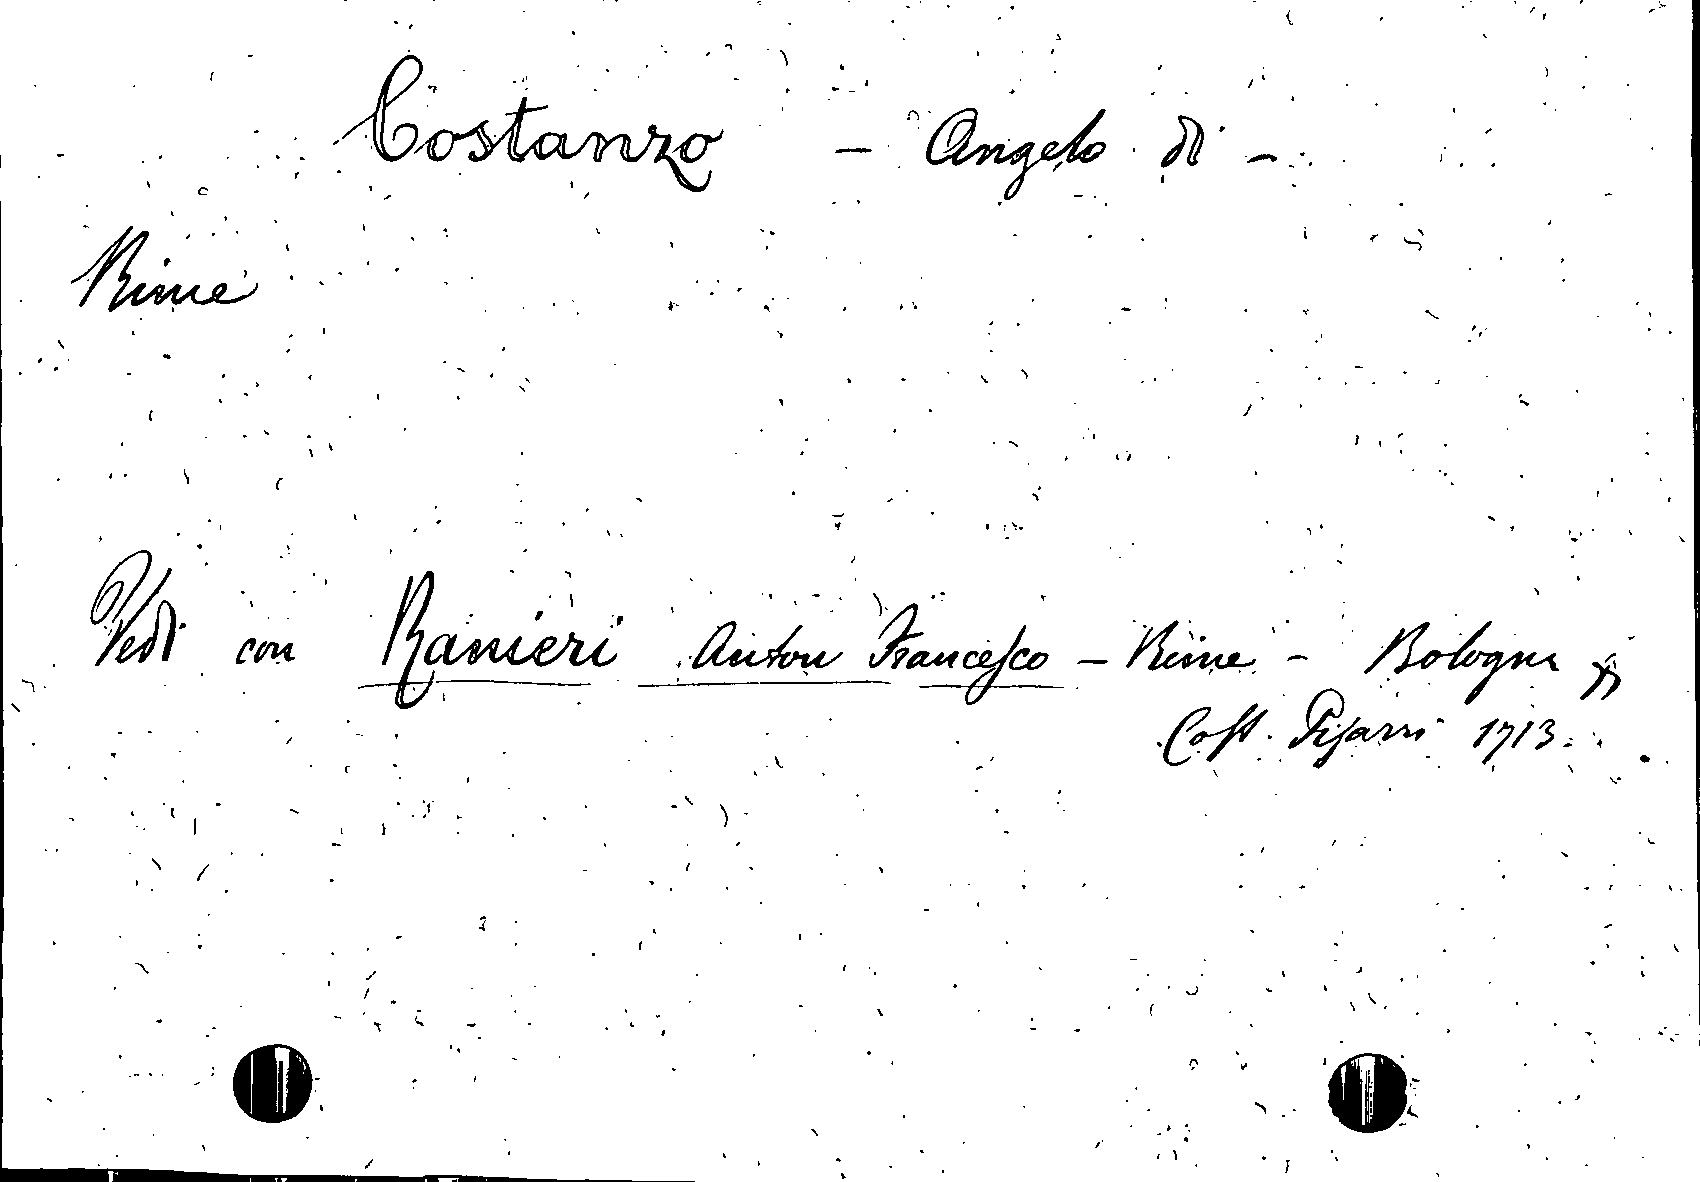 Costanzo - Angelo di -
Rime
Vedi con Ranieri Anton Francesco - Rime - Bologna
Cost. Pisarri 1713.